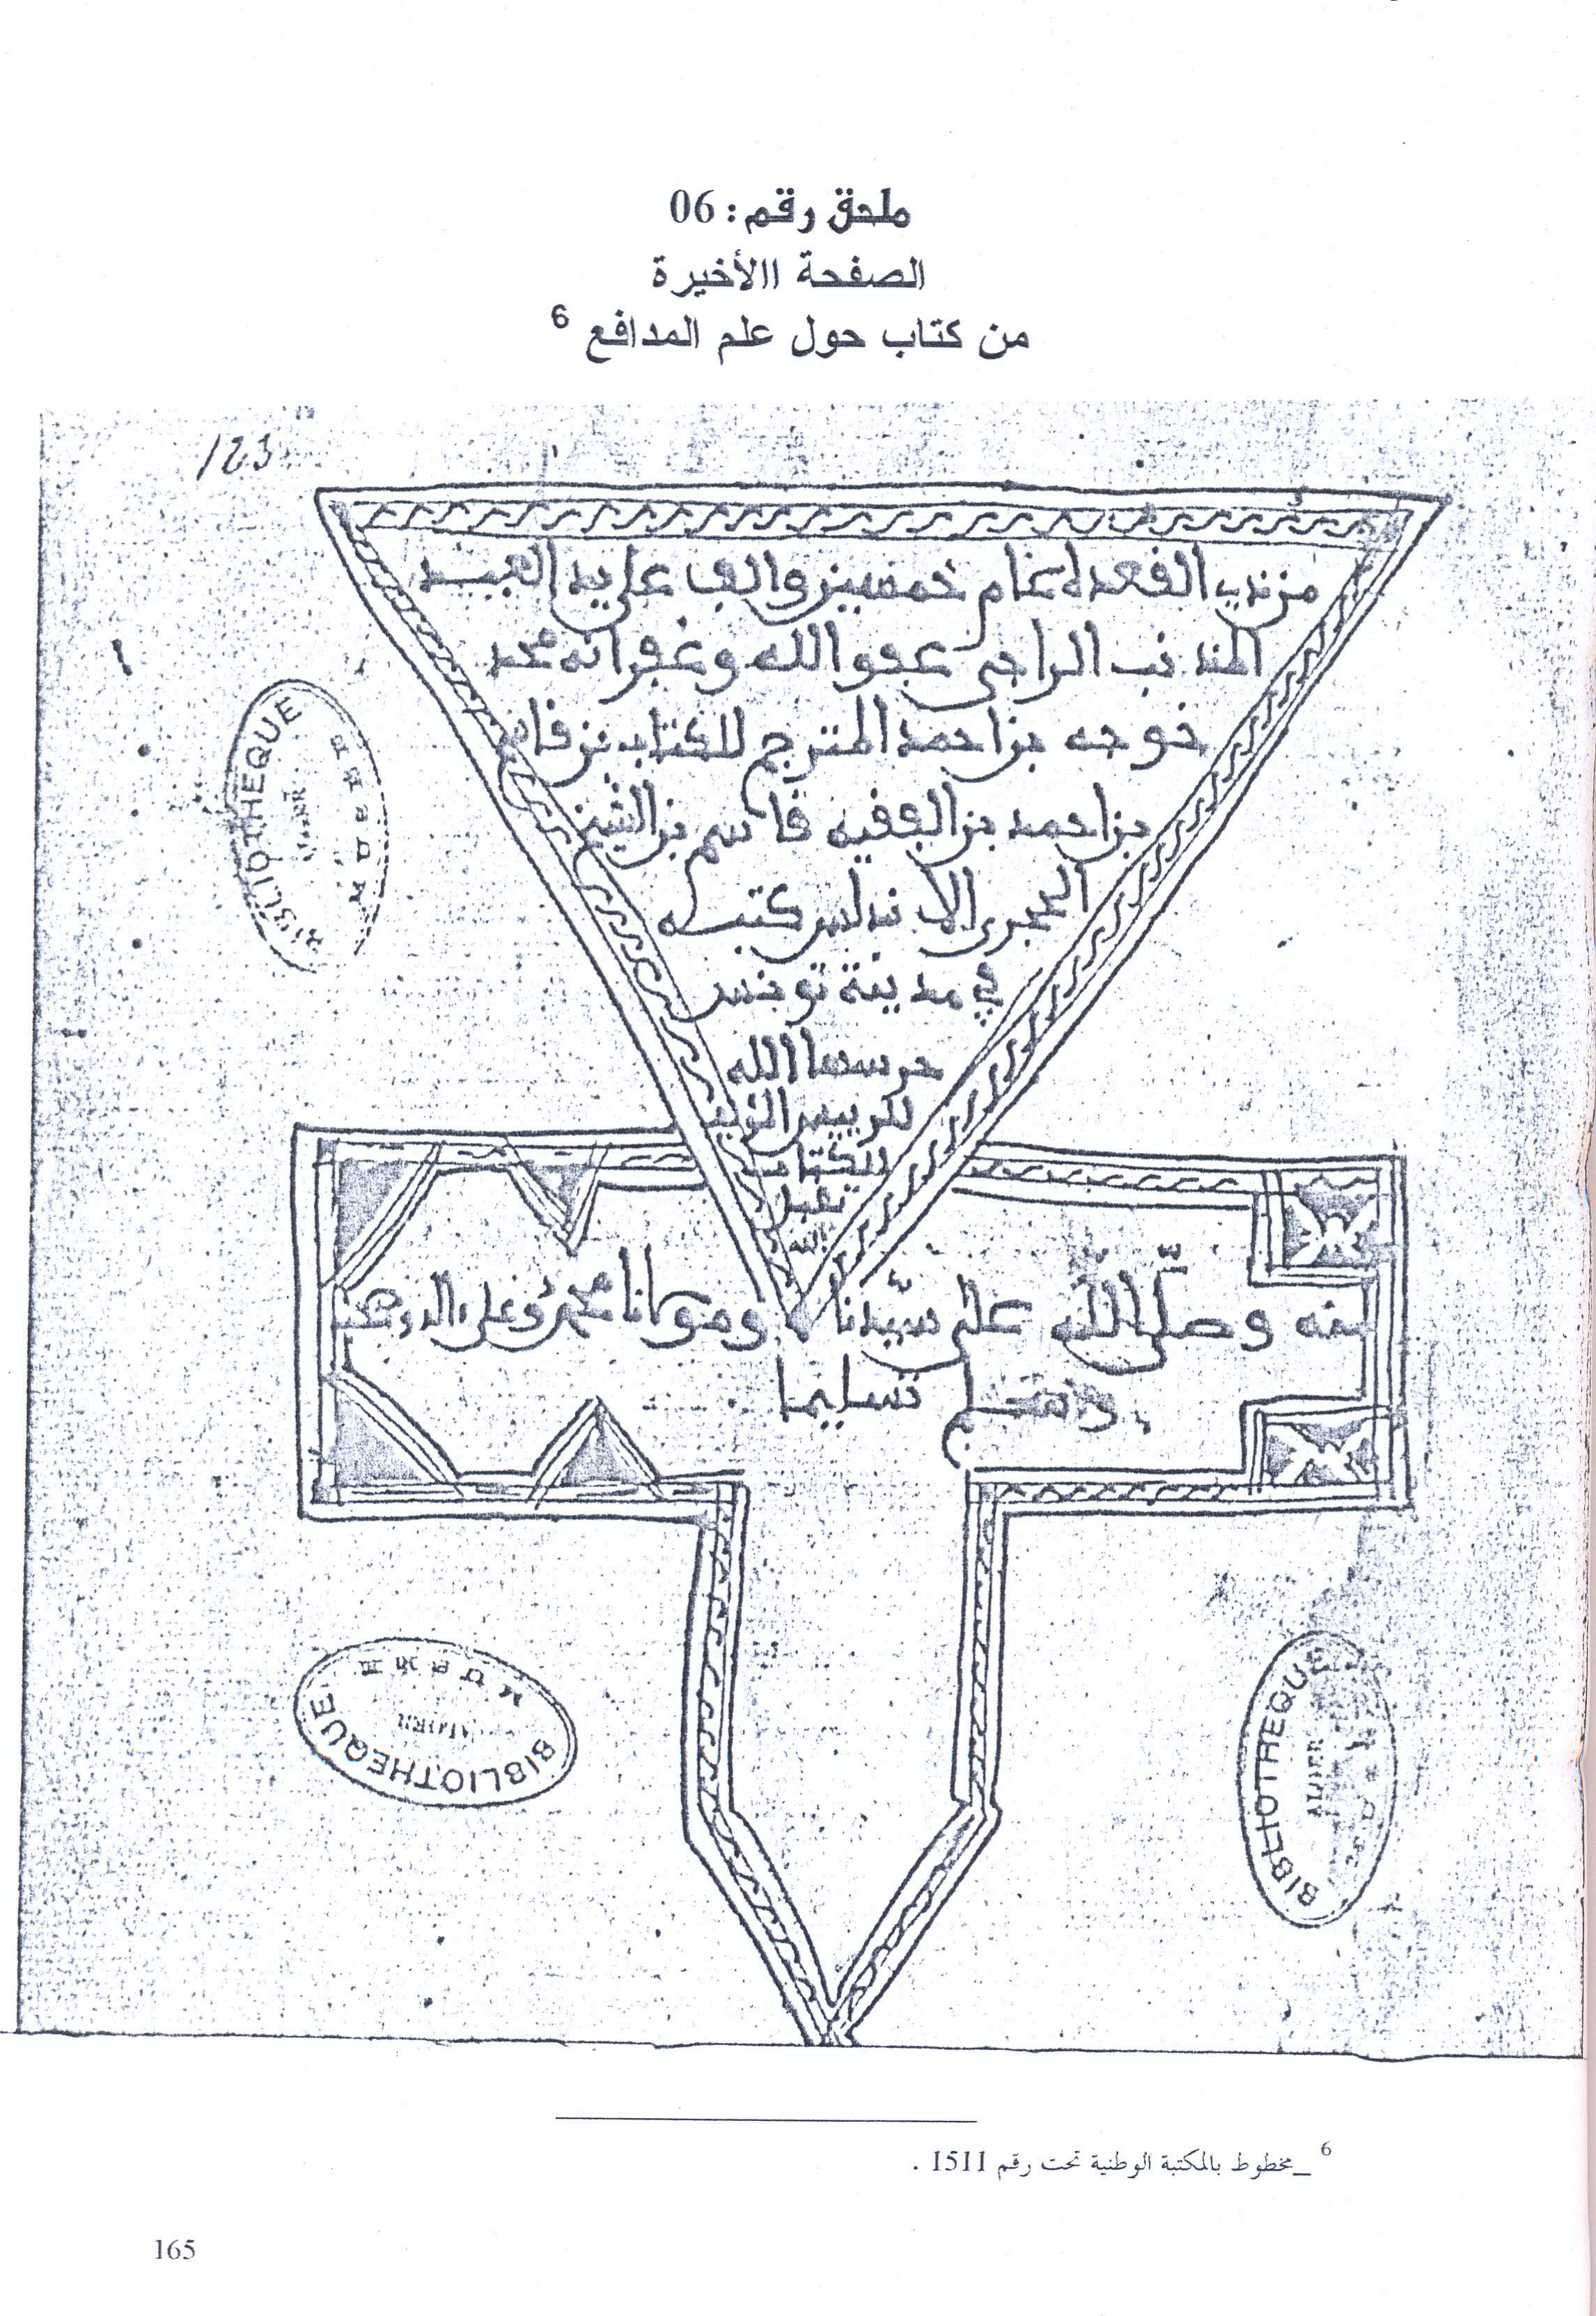 ملحق رقم: 06
الصفحة االأخيرة
من كتاب حول علم المدافع 6
123
من ذي القعدة عام خمسين والف على يد العبيد
المذنب الراجى عفو الله وغفرانه محمد
خوجه بن احمد المترجم للكتاب بن قاسم
بن احمد بن الفقيه قاسم بن الشيخ
الحجرى الاندلسى كتبه
في مدينة تونس
حرسها الله
للرييس
الكتاب
تقبل
الله
منه وصلّى الله على سيّدنا ومولانا محمد وعلى اله وصحبه
وسلم تسليما
BIBLIOTHEQUE
BIBLIOTHEQUE
ALGER
BIBLIOTHEQUE
ALGER
6 _مخطوط بالمكتبة الوطنية تحت رقم 1511 .
165